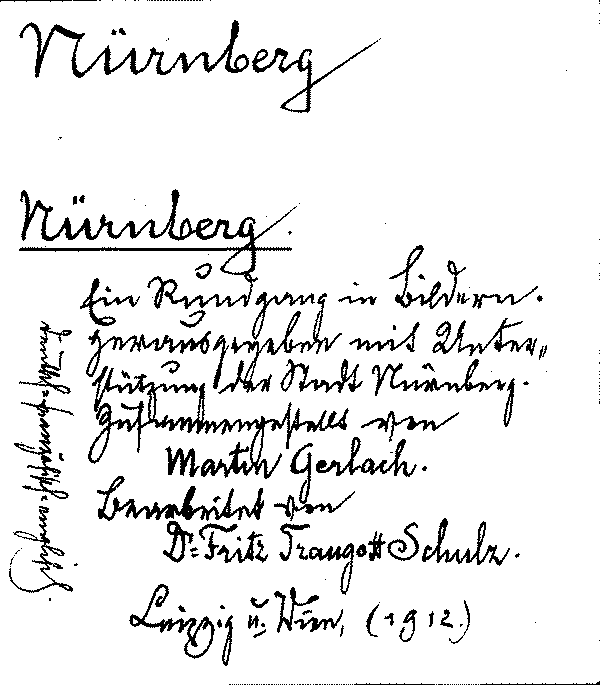 Nürnberg
Nürnberg.
Ein Rundgang in Bildern.
Herausgegeben mit Unter-
stützung der Stadt Nürnberg.
Zusammengestellt von
Martin Gerlach.
Bearbeitet von
Dr. Fritz Traugott Schulz.
Leipzig u. Wien, (1912.)
deutsch=französisch=englisch.